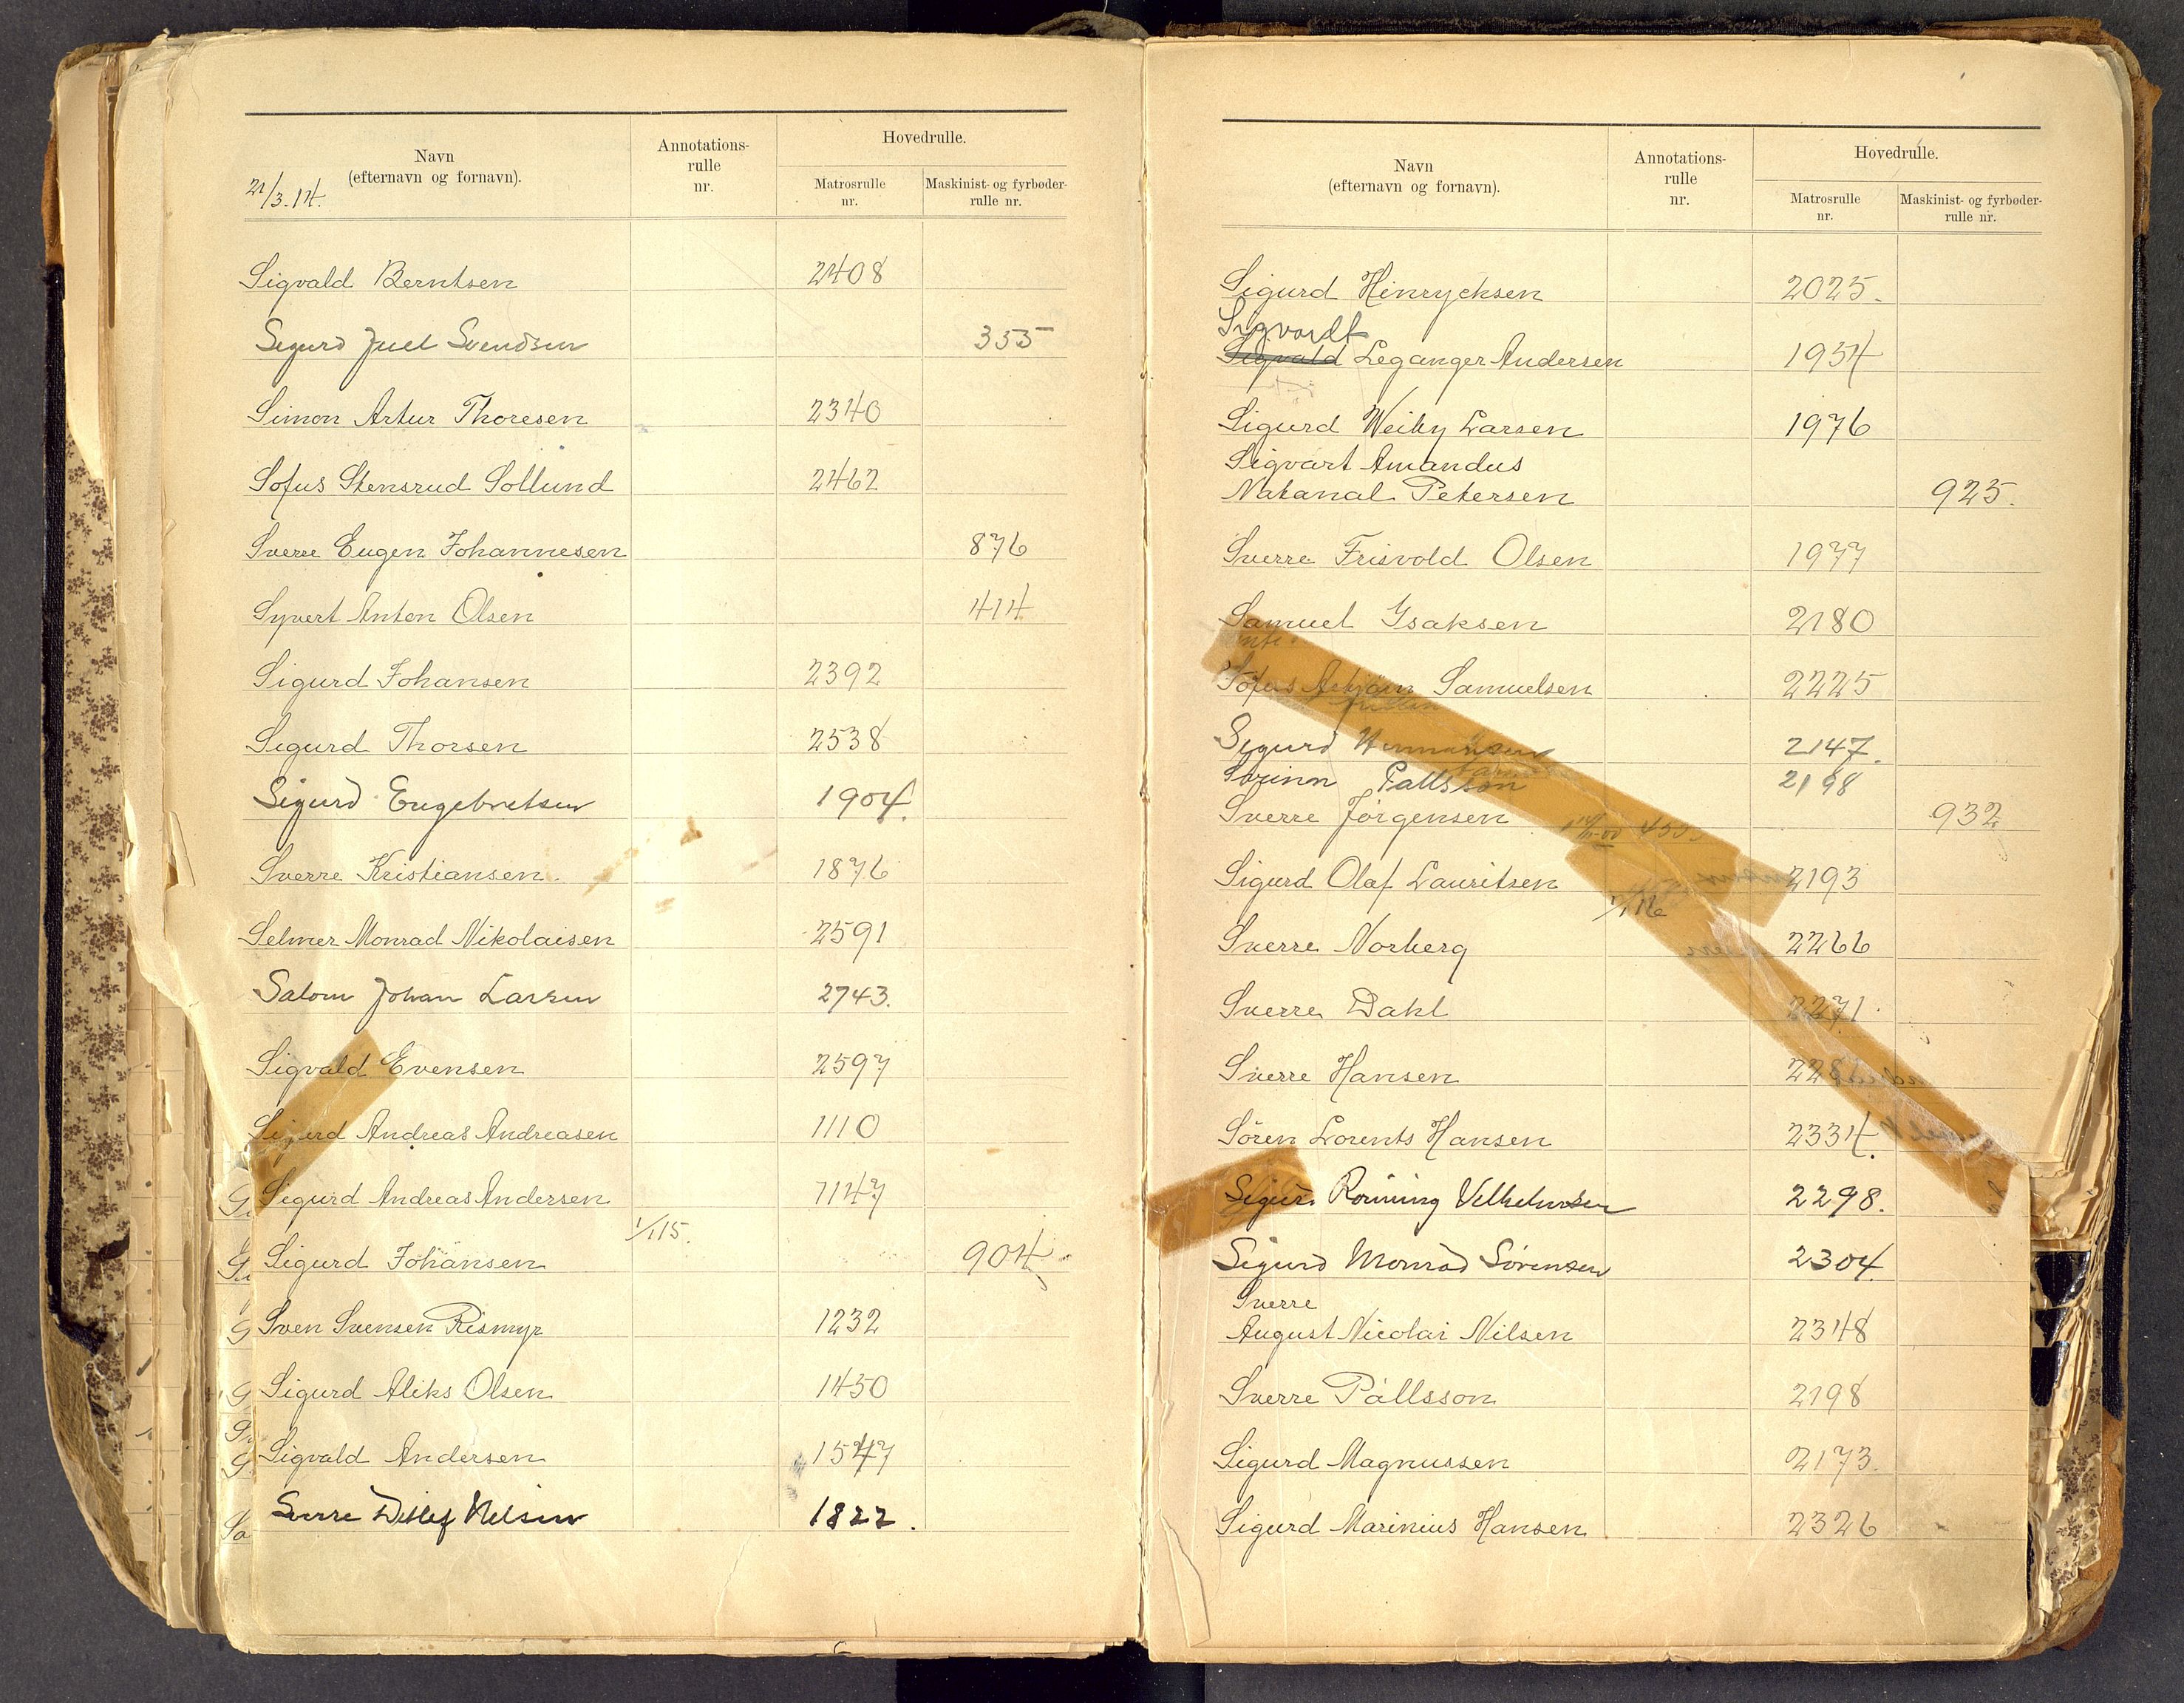 Navn
(efternavn og fornavn).
Annotations-
rulle
nr.
Hovedrulle.
Matrosrulle
nr.
Maskinist- og fyrbøder-
rulle nr.
21/3.14.
Sigvald Berntsen 2408
Sigurd Juel Svendsen 355
Simon Artur Thoresen 2340
Sofus Stensrud Sollund 2462
Sverre Eugen Johannesen 876
Syvert Anton Olsen 414
Sigurd Johansen 2392
Sigurd Thorsen 2538
Sigurd Engebretsen 1904.
Sverre Kristiansen. 1876
Selmer Monrad Nikolaisen 2591
Salom Johan Larsen 2743.
Sigvald Evensen 2597
Sigurd Andreas Andreasen 1110
Sigurd Andreas Andersen 1147
1/1 15.
Sigurd Johansen 904
Sven Svensen Rismyr 1232
Sigurd Aliks Olsen 1450
Sigvald Andersen 1547
Sverre Ditlef Nelsen 1822.
Navn
(efternavn og fornavn).
Annotations-
rulle
nr.
Hovedrulle.
Matrosrulle
nr.
Maskinist- og fyrbøder-
rulle nr.
Sigurd Hinrycksen 2025.
Sigvardt
Sigvald Leganger Andersen 1954
Sigurd Weiby Larsen 1976
Sigvart Amandus
Natanal Petersen 925.
Sverre Frisvold Olsen 1977
Samuel Ysaksen 2180
Sofus Asbjörn Samuelsen 2225
Sigurd Hermansen 2147.
Sveinn Pallsson 2198
Sverre Jörgensen 932
Sigurd Olaf Lauritsen 2193
1/1 16
Sverre Norberg 2266
Sverre Dahl 2271.
Sverre Hansen
Sören Lorents Hansen 2334.
Sigurd Ronning Vilhelmsen 2298.
Sigurd Monrad Sörensen 2304.
Sverre
August Nicolai Nilsen 2348
Sverre Pállsson 2198
Sigurd Magnussen 2173.
Sigurd Marinius Hansen 2326